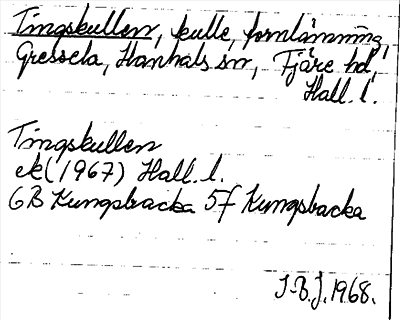 Tingskullen, kulle, fornlämning,
Gressela, Hanhals sn, Fjäre hd,
Hall. l.
Tingskullen
ek (1967) Hall. l.
6B Kungsbacka 5f Kungsbacka
J-B.J. 1968.